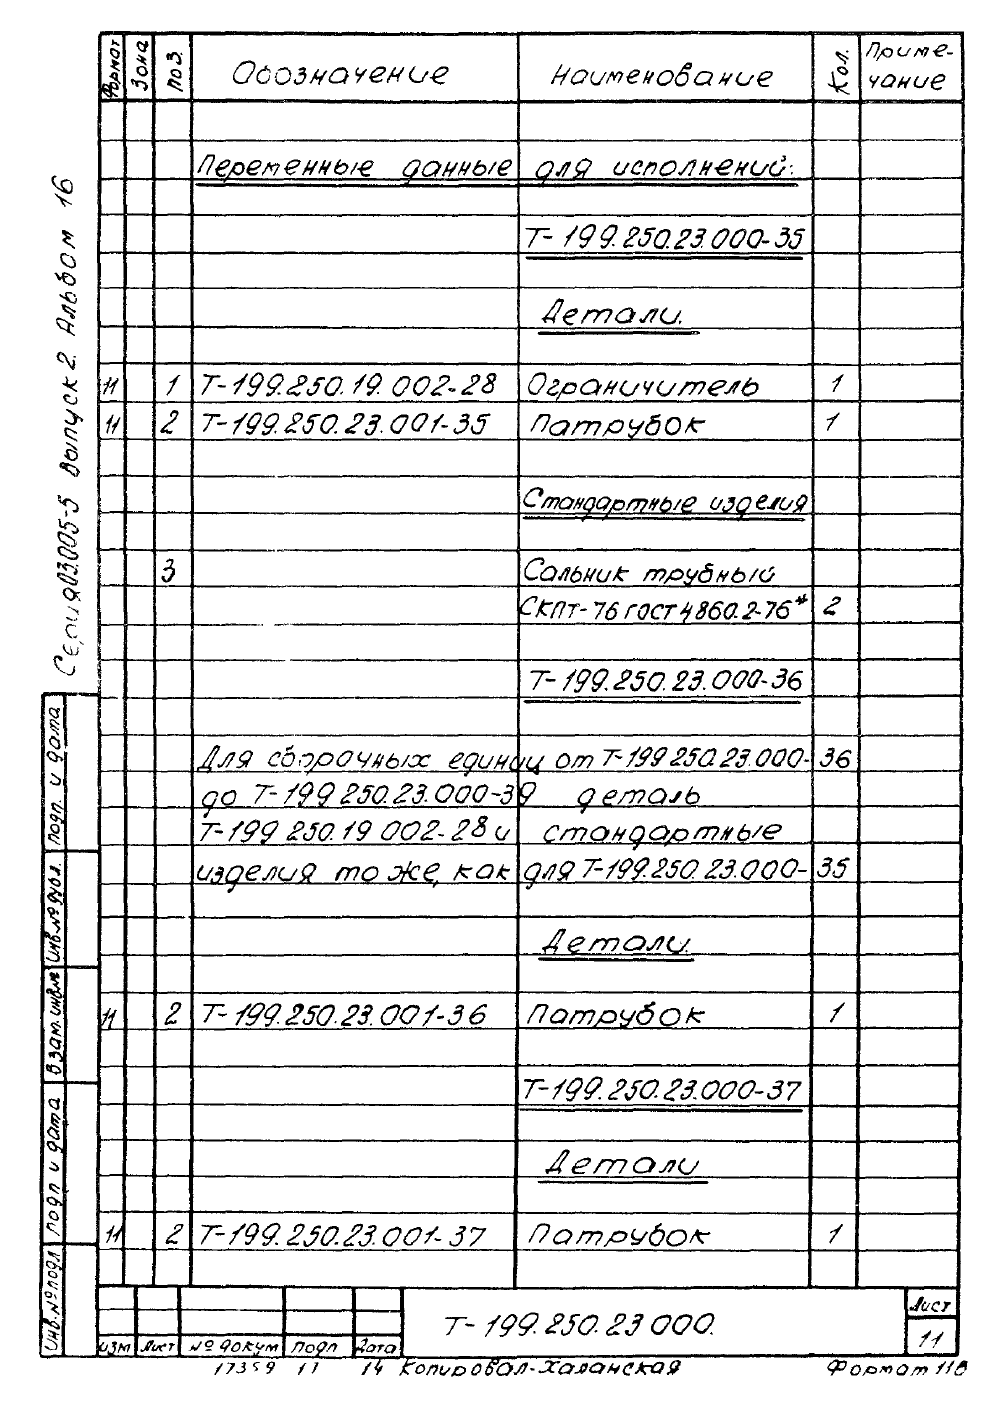 Формат Зона Поз. Обозначение Наименование Кол. Приме-
чание
Переменные данные для исполнений:
Т-199.250.23.000-35
Детали.
11 1 Т-199.250.19.002-28 Ограничитель 1
11 2 Т-199.250.23.001-35 Патрубок 1
Стандартные изделия
3 Сальник трубный
СКПТ-76 ГОСТ 4860.2-76* 2
Т-199.250.23.000-36
Для сборочных единиц от Т-199 250.23.000-36
до Т-199 250.23.000-39 деталь
Т-199 250.19 002-28 и стандартные
изделия то же, как для Т-199.250.23.000-35
Детали.
11 2 Т-199.250.23.001-36 Патрубок 1
Т-199.250.23.000-37
Детали
11 2 Т-199.250.23.001-37 Патрубок 1
Т-199.250.23 000.
Лист
11
изм Лист № докум подп Дата
17359 11 14 Копировал-Халанская Формат 11в
Серия 03.005-5 выпуск 2. Альбом 16
подп. и дата
инв.№ дубл.
взам. инв.№
подп и дата
инв.№ подл